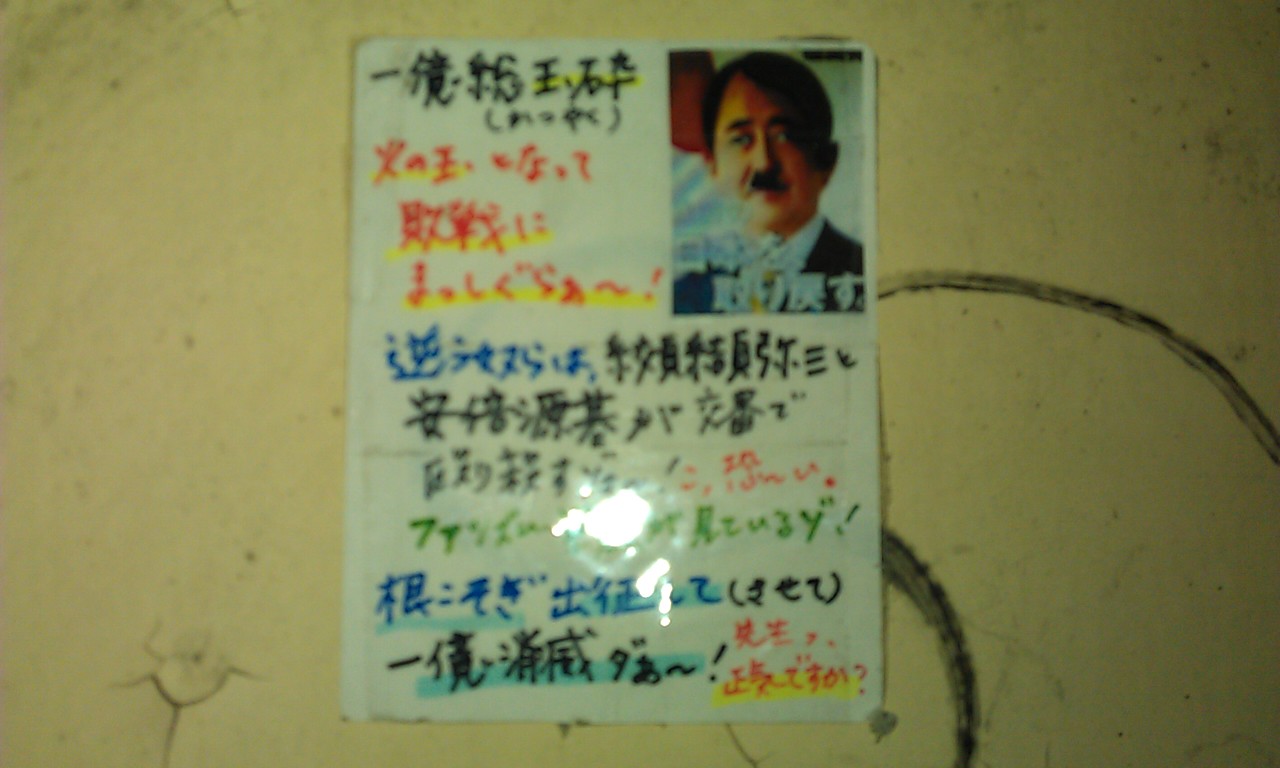 一億総玉砕
火の玉となって
敗戦に
まっしぐらぁ～!
取り戻す
逆らう奴らは、纐纈弥三と
安倍源基が交番で
殴り殺すぞ～!こ、恐～い。
が見ているゾ!
根こそぎ出征して(させて)
一億消滅ダぁ～!
先生っ、
正気ですか?